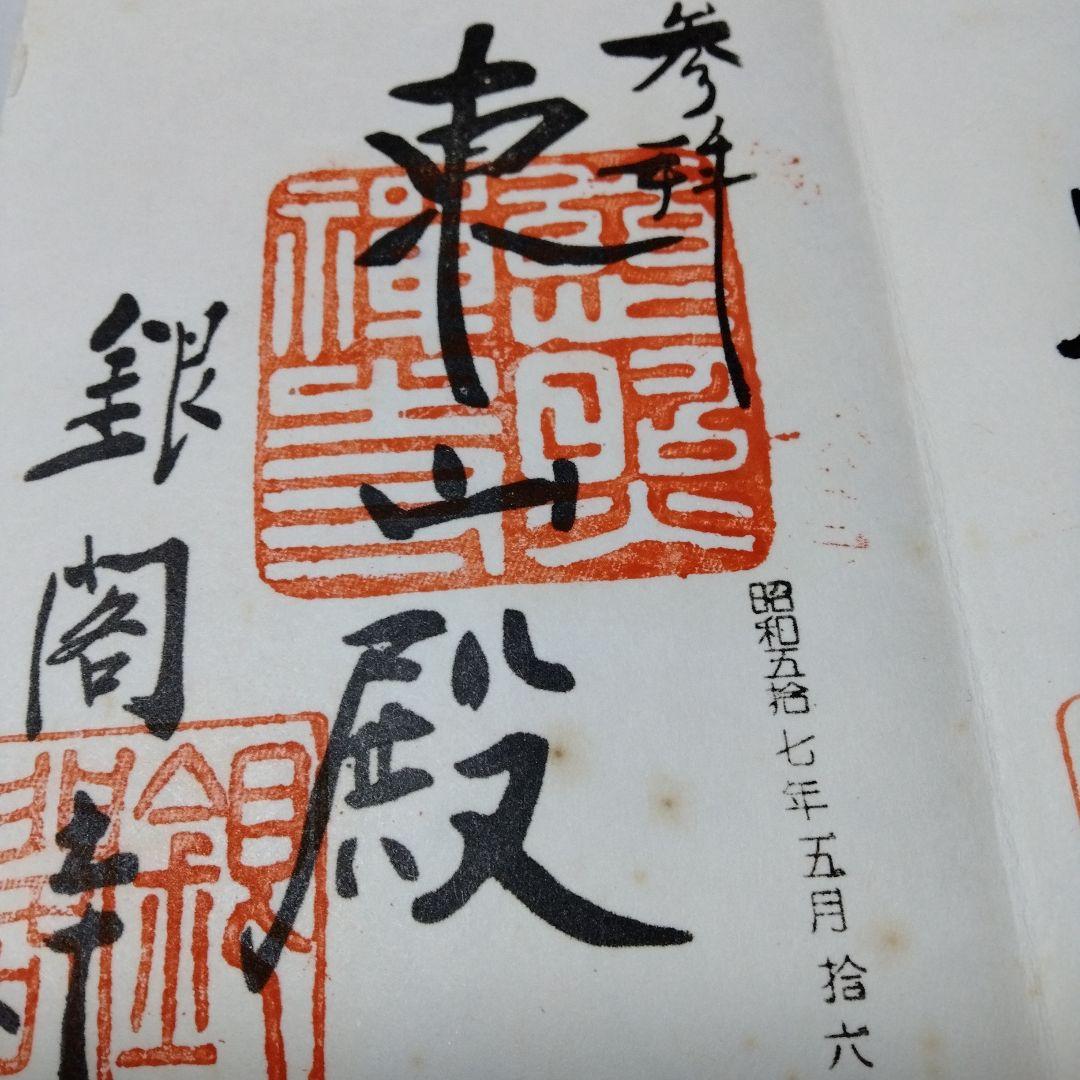 参拝
昭和五拾七年五月拾六
東山殿
慈照禅寺
銀閣寺
銀閣